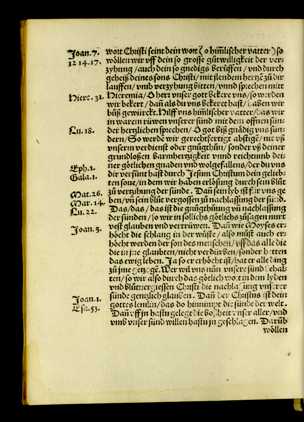 Joan. 7.
12 14. 17.
Hiere. 31.
Lu. 18.
Eph. 1.
Gala. 1.
Mat. 26.
Mar. 14.
Lu. 22.
Joan. 3.
Joan. 1.
Esa. 53.
wort Christi seint dein wort (o himlischer vatter) so
wöllen wir vff dein so grosse gütwilligkeit der ver
zyhung / auch dein so gnedigs berüffen / vnd durch
geheiß deines sons Christi / mit flendem hertzen zů dir
lauffen / vmb verzyhung bitten / vnnd sprechen mit
Hieremia / O herr vnser gott bekere vns / so werden
wir bekert / dan als du vns bekeret hast / haben wir
bůß gewürckt. Hilff vns himlischer vatter / das wir
in waren rüwen vnserer sünd mit dem offnen sün-
der hertzlichen sprechen / O got biß gnädig vns sün-
dern / So werdē wir gerechtfertiget abstige / nit vß
vnserm verdienst oder gnůgthün / sonder vß deiner
grundlosen barmhertzigkeit vnnd reichtumb dei-
ner götlichen gnaden vnd wolgefallens / der du vns
dir versünt hast durch Jesum Christum dein gelieb-
ten sone / in dem wir haben erlösung durch sein blůt
zů verzyhung der sünde. Dan sein leib ist für vns ge-
ben / sein blůt vergossen zů nachlassung der sünd.
Das / das / das ist die gnůgthuung vn nachlassung
der sünden / so wir in sollichs götlichs zůsagen nurt
vest glauben vnd vertrüwen. Dan wie Moyses er-
höcht die schlang in der wůste / also můst auch er-
höcht werden der son des menschen / vff das alle die
die in ine glauben / nicht verdürben / sonder hetten
das ewig leben. Ja so er erhöcht ist / hat er alle ding
zů ime gezogē. Wer wil vns nun vnsere sünd behal-
ten / so wir also durch das götlich wort / in dem leyden
vnd blůtvergiessen Christi die nachlassung vnserer
sünde gentzlich glauben. Dan der Christus ist dein
gottes lemlin / das do hinnimpt die sünde der welt.
Dan vff in hastu gelegt die boßheit vnser aller / vnd
vmb vnser sünd willen hastu in geschlagen. Darüb
wöllen